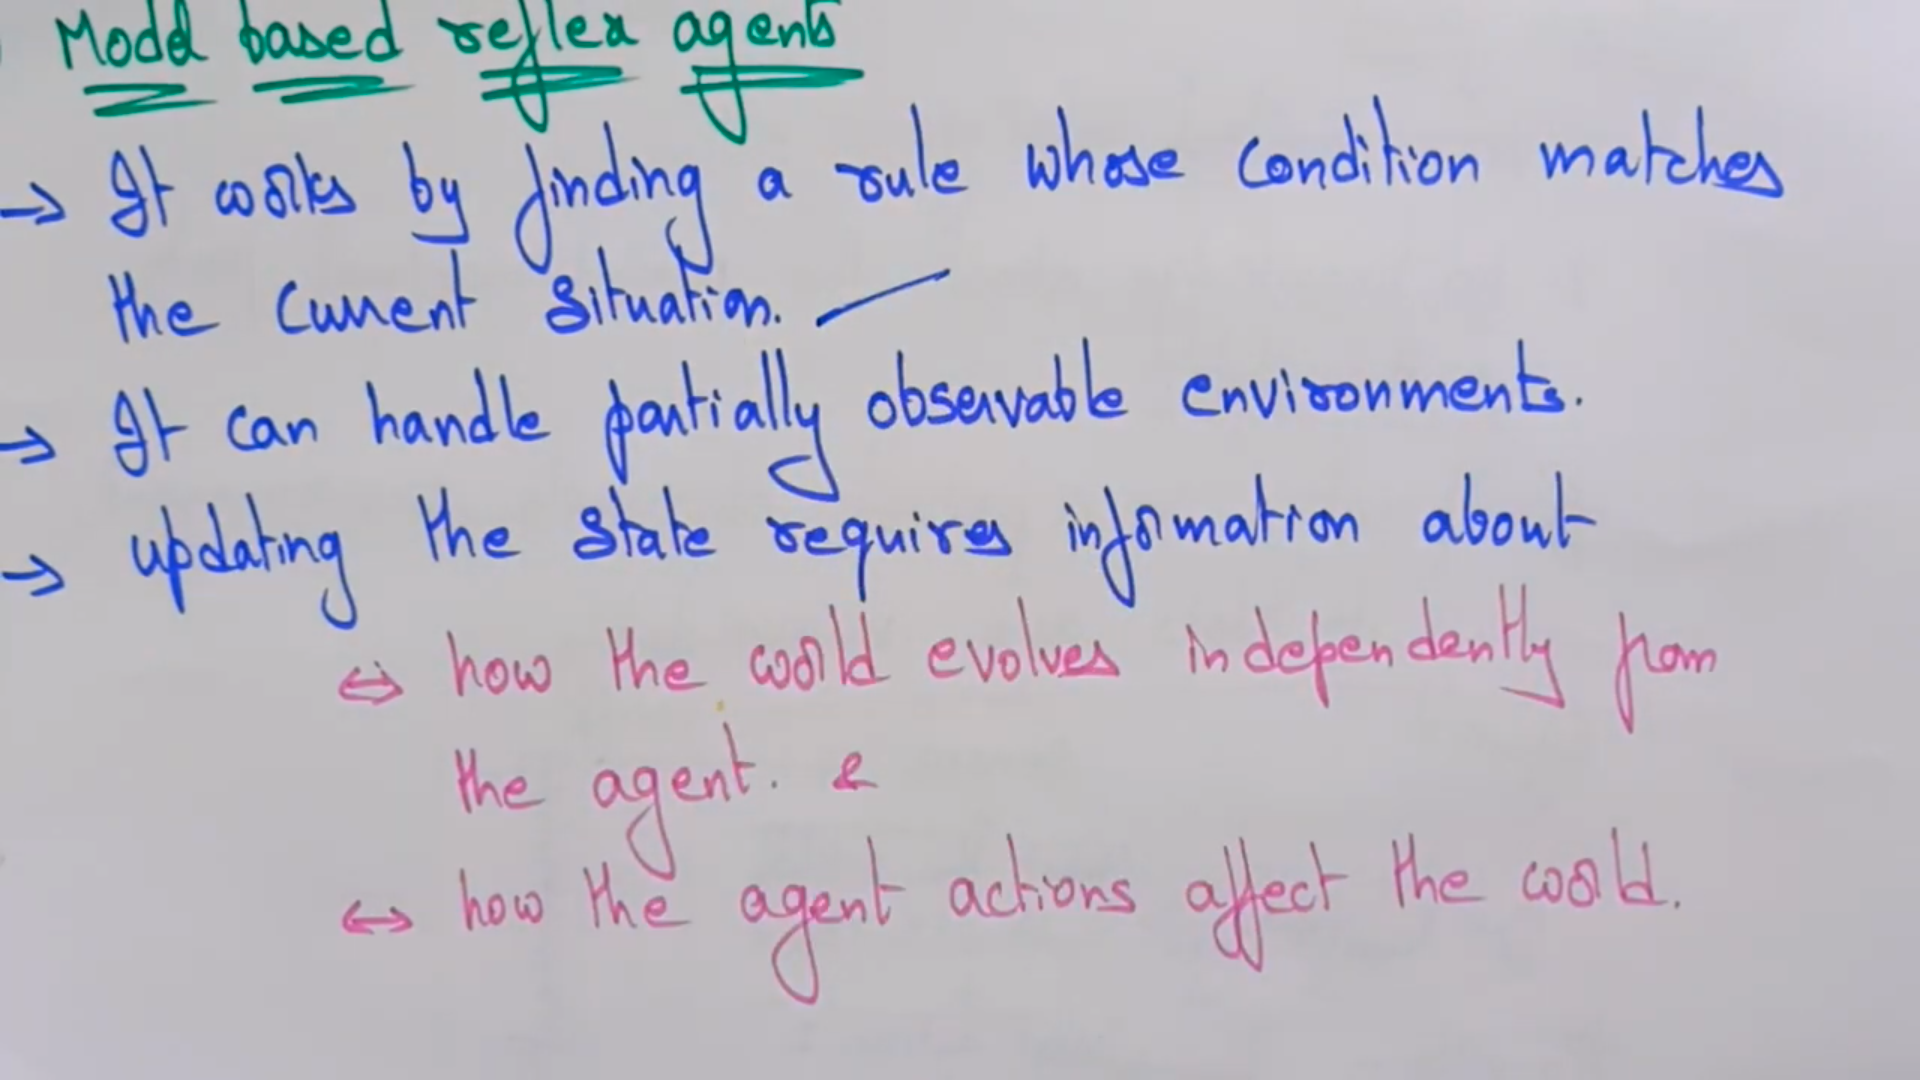 Model based reflex agents
→ It works by finding a rule whose condition matches
the current situation.
→ It can handle partially observable environments.
→ updating the state requires information about
⇔ how the world evolves independently from
the agent. &
↔ how the agent actions affect the world.